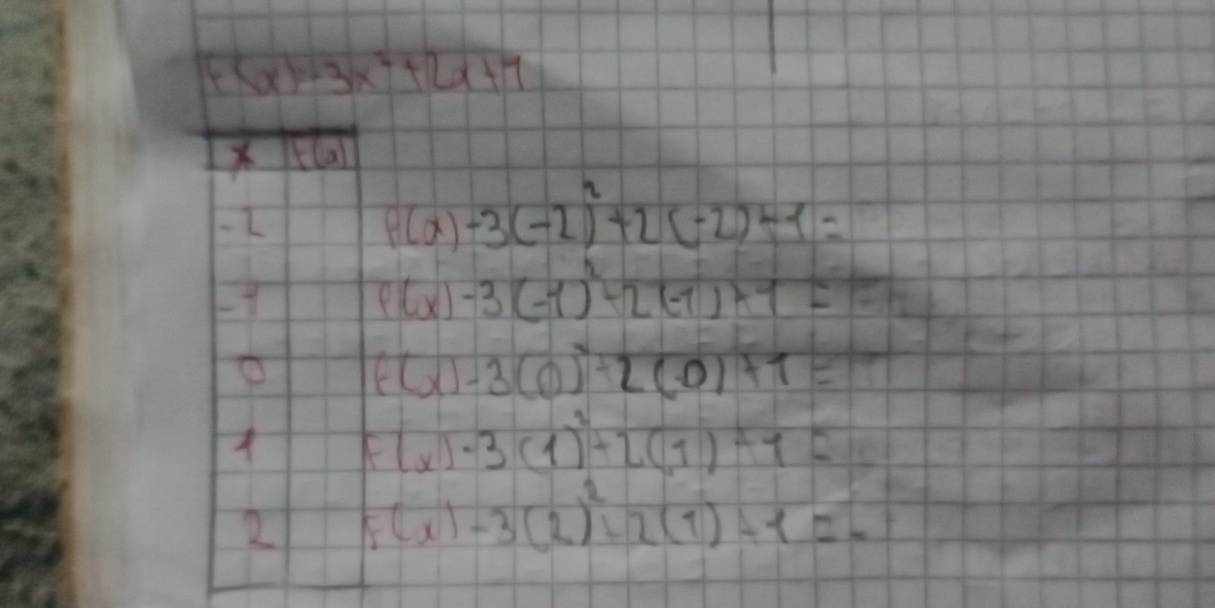 F(x)=-3x²+2x+1
x F(x)
-2 f(x)-3(-2)²+2(-2)+1=
-1 f(x)-3(-1)²+2(-1)+1=
0 f(x)-3(0)²+2(0)+1=
1 F(x)-3(1)²+2(1)+1=
2 F(x)-3(2)²+2(1)+1=-